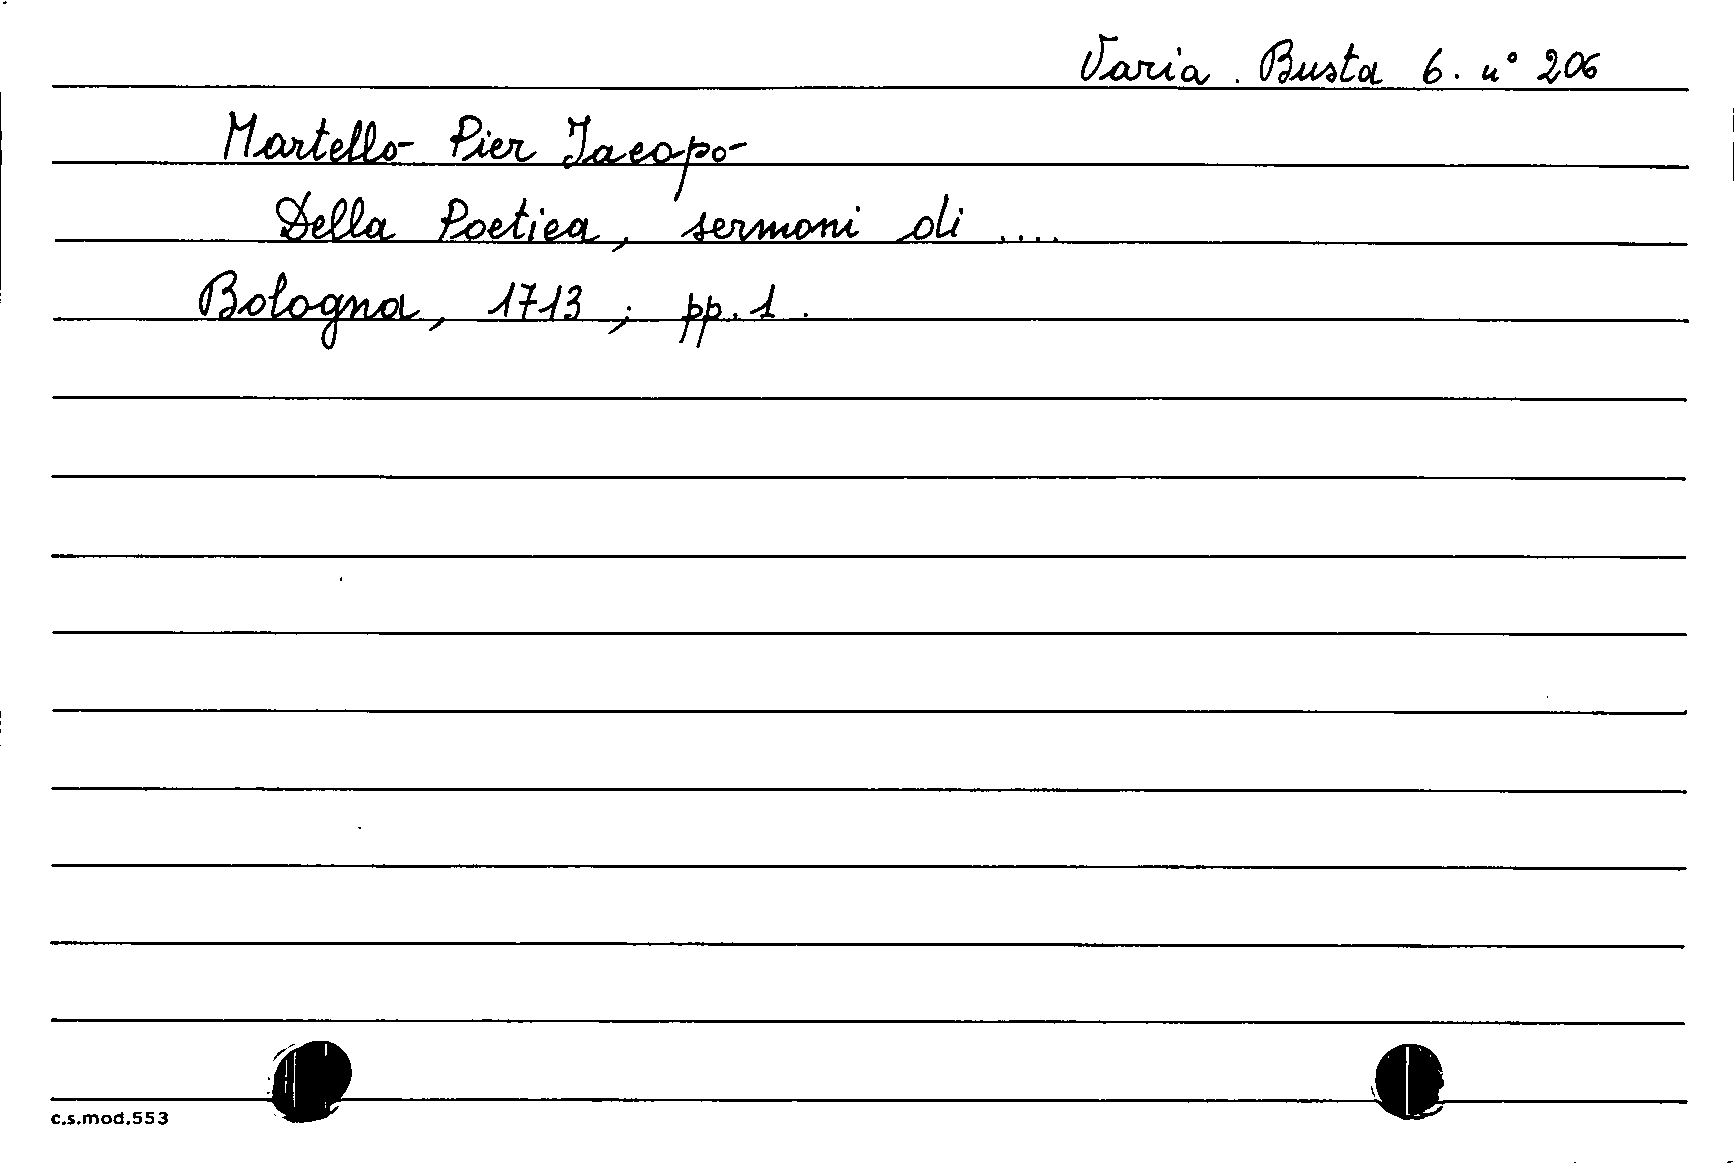 Varia. Busta 6. n° 206
Martello Pier Jacopo
Della Poetica, sermoni di ....
Bologna, 1713; pp. 1.
c.s.mod.553